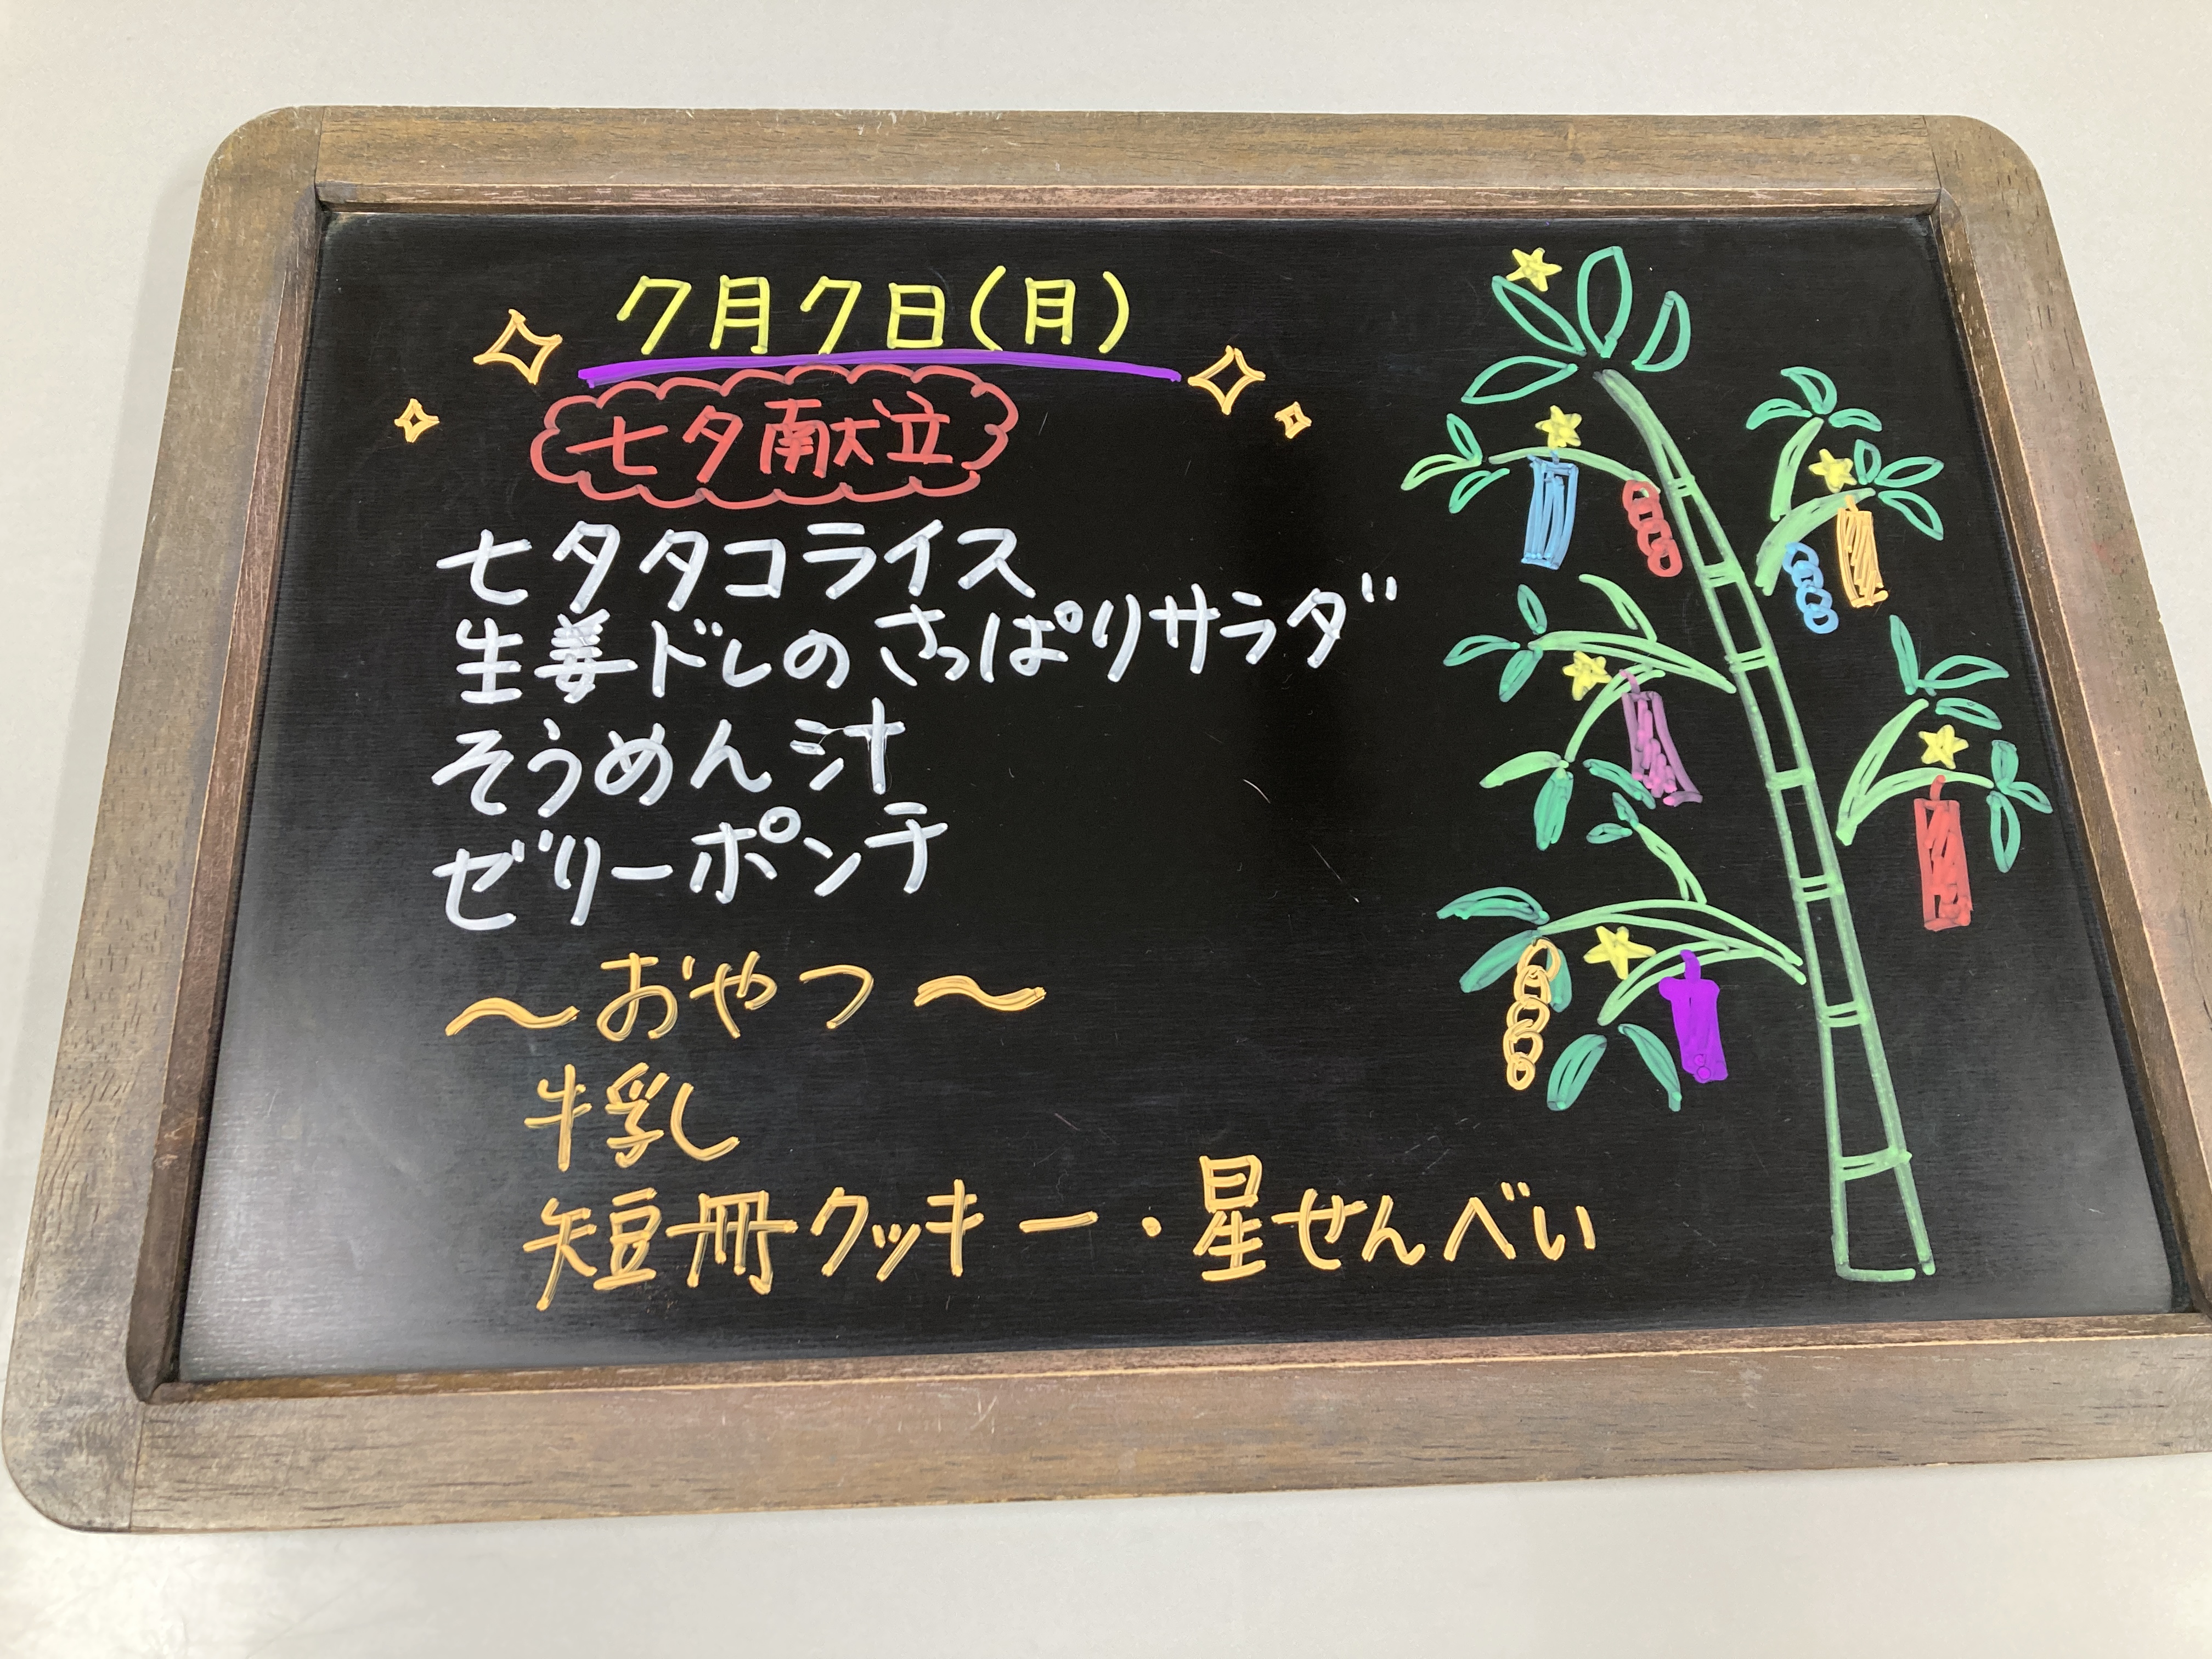 7月7日(月)
七夕献立
七夕タコライス
生姜ドレのさっぱりサラダ
そうめん汁
ゼリーポンチ
～おやつ～
牛乳
短冊クッキー・星せんべい